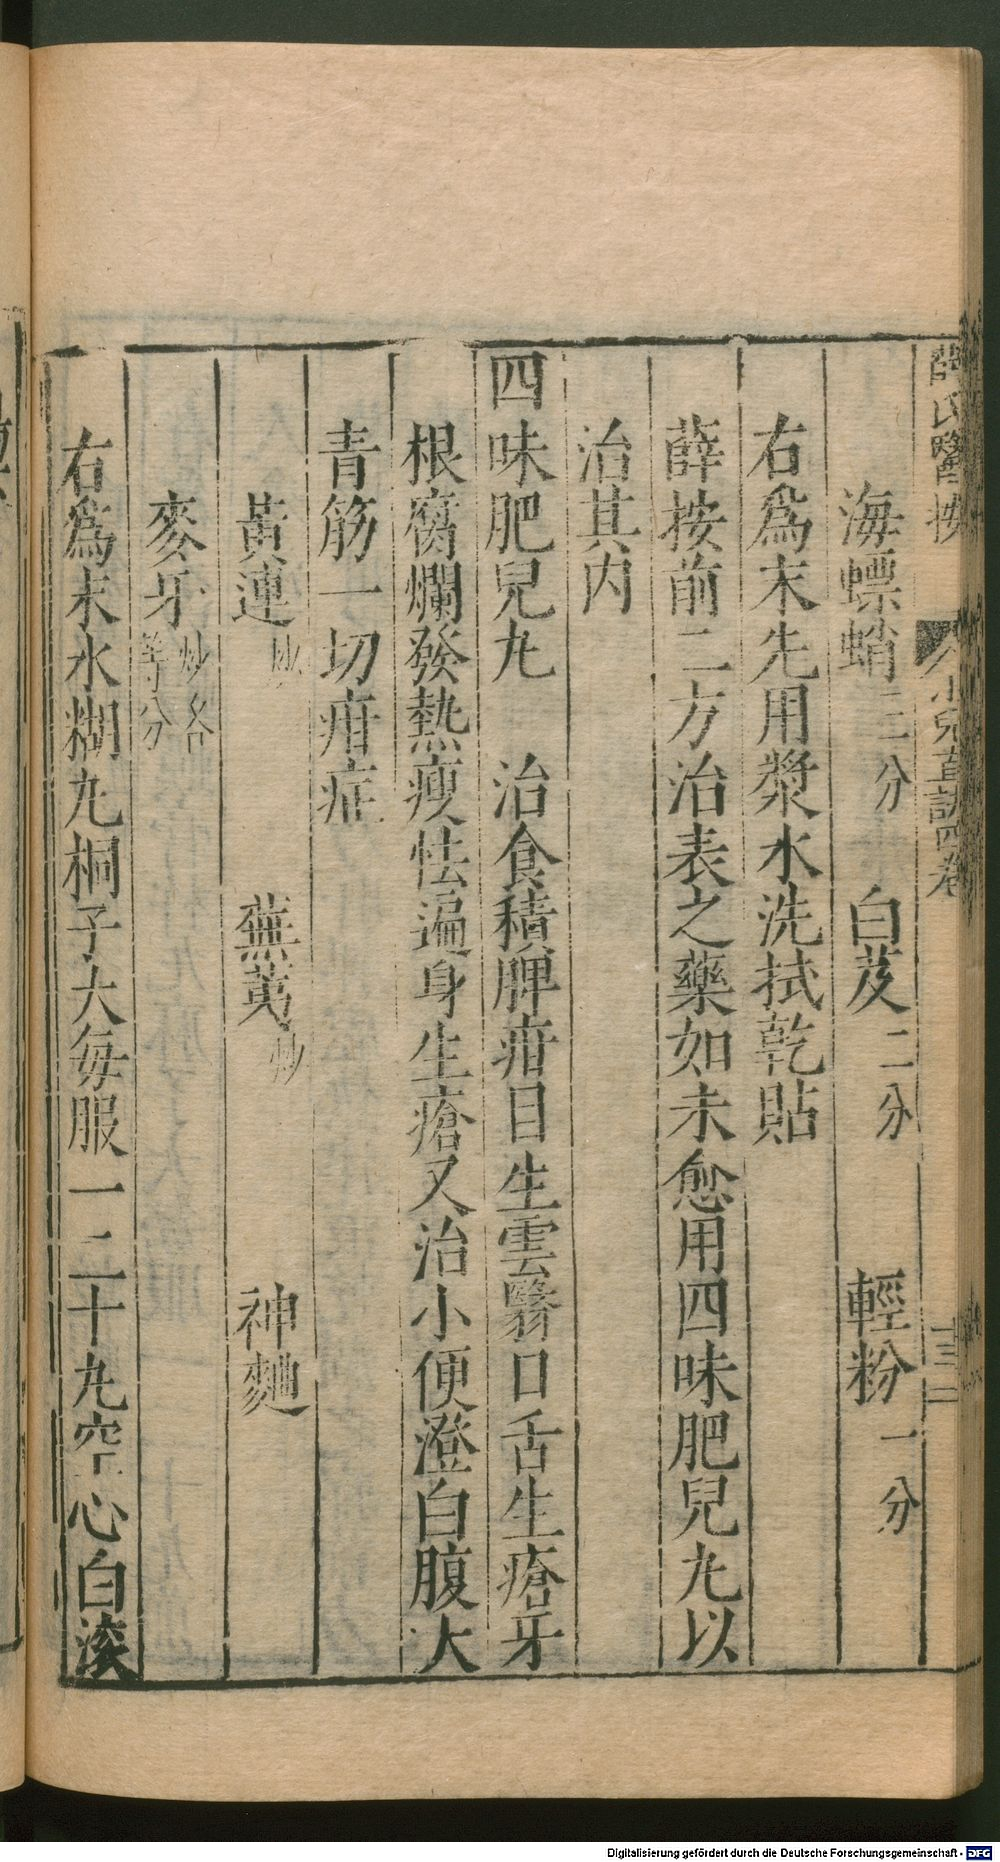 薛氏醫按
小兒直訣四卷
十三
海螵蛸三分 白芨二分 輕粉一分
右爲末先用漿水洗拭乾貼
薛按前二方治表之藥如未愈用四味肥兒九以
治其内
四味肥兒九 治食積脾疳目生雲翳口舌生瘡牙
根腐爛發熱瘦怯遍身生瘡又治小便澄白腹大
青筋一切疳症
黃連炒 蕪荑炒 神麯
麥牙炒各等分
右爲末水糊九桐子大每服一二十九空心白滚
Digitalisierung gefördert durch die Deutsche Forschungsgemeinschaft - DFG